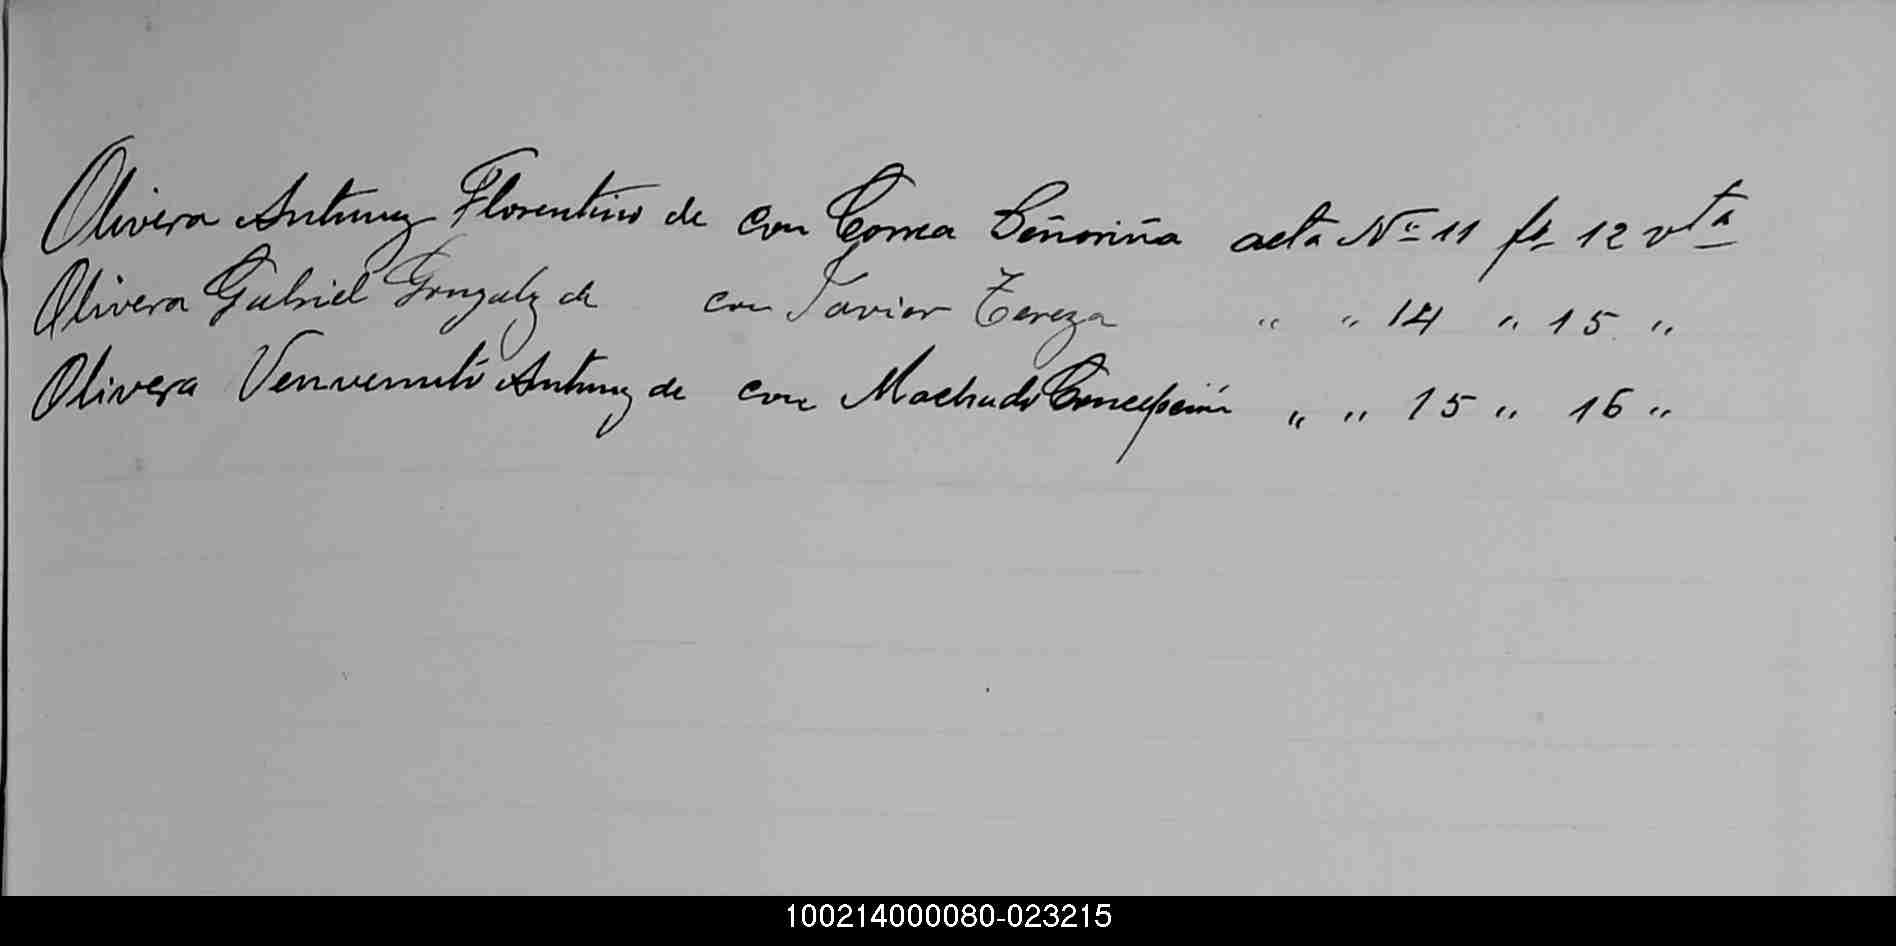 Olivera Antunez Florentino de con Correa Señoriña acta Nº 11 fs 12 vta
Olivera Gabriel Gonzalz de con Javier Tereza " " 14 " 15 "
Olivera Venvenuto Antunz de con Machado Concepción " " 15 " 16 "
100214000080-023215